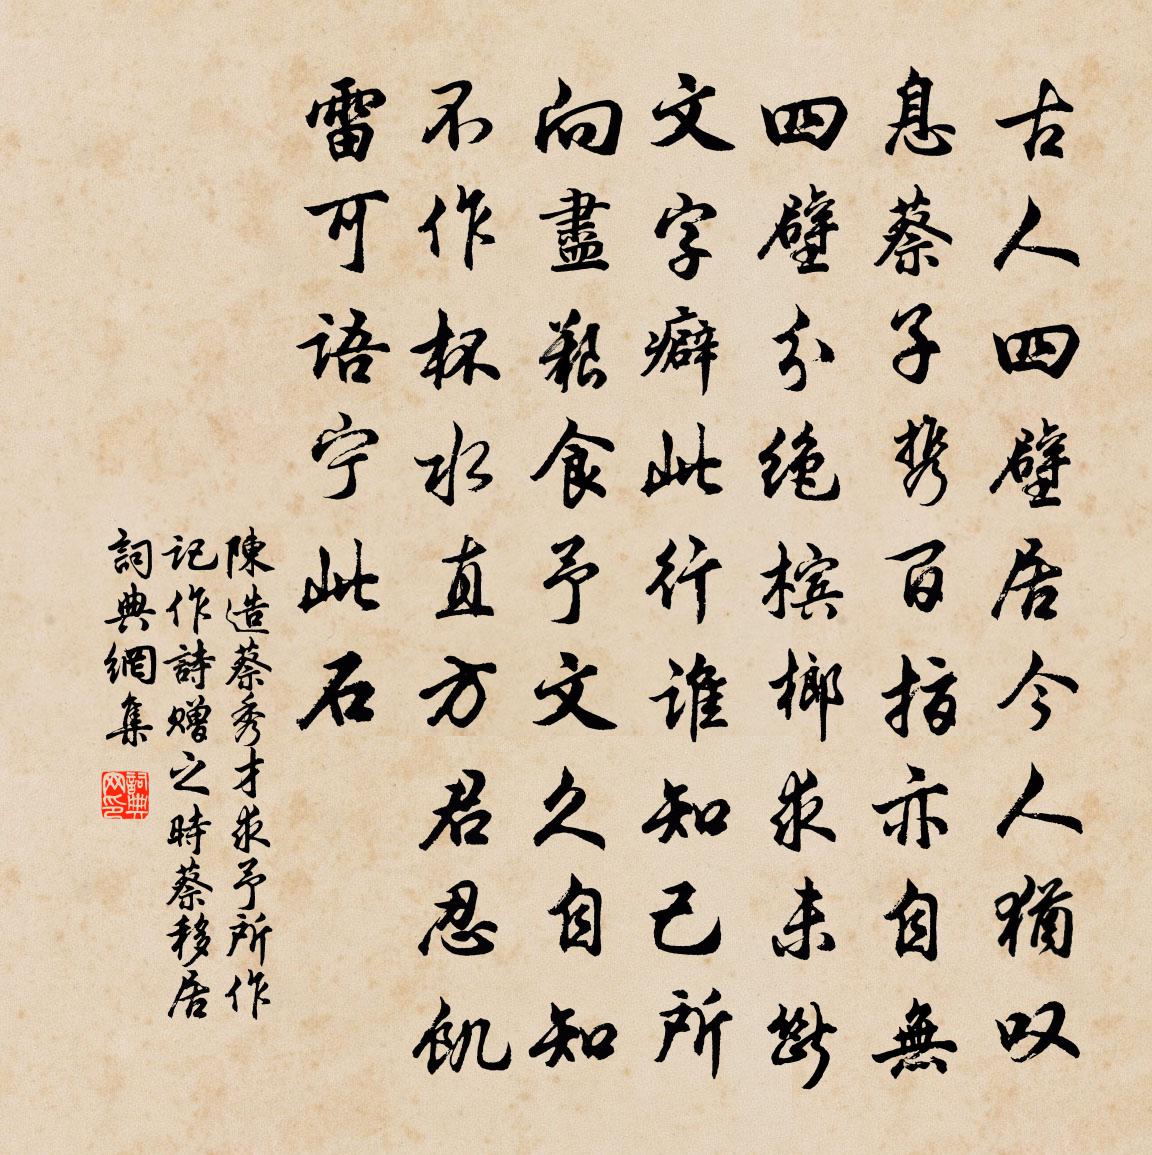 古人四壁居今人猶叹
息蔡子携百指亦自無
四壁分绝槟榔求未斷
文字癖此行谁知己所
向盡艱食予文久自知
不作杯水直方君忍飢
雷可語宁此石
陳造蔡秀才求予所作
記作詩赠之時蔡移居
詞典網集
詞典网印